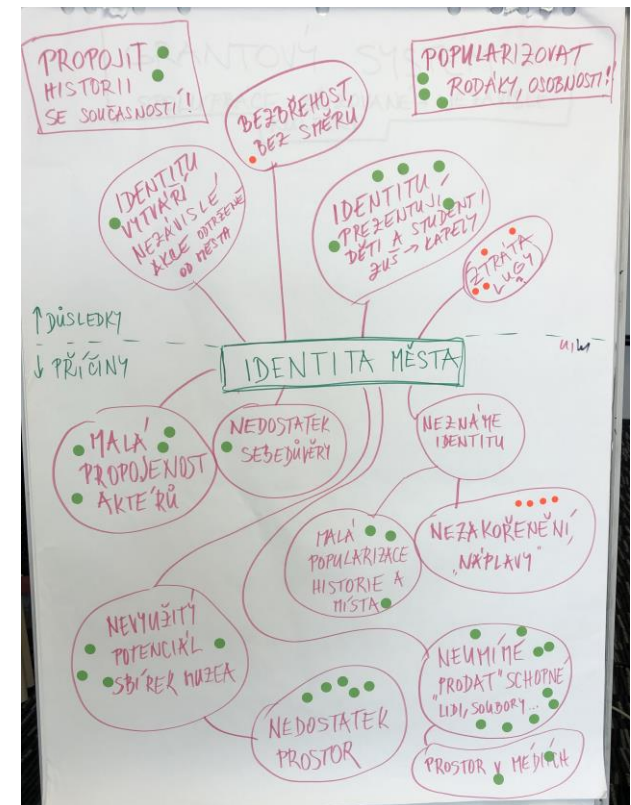 PROPOJIT
HISTORII
SE SOUČASNOSTÍ!
BEZBŘEHOST,
BEZ SMĚRU
POPULARIZOVAT
RODÁKY, OSOBNOSTI!
IDENTITU
VYTVÁŘÍ
NEZÁVISLÉ
AKCE ODTRŽENĚ
OD MĚSTA
IDENTITU
PREZENTUJÍ
DĚTI A STUDENTI
ZUŠ → KAPELY
ZTRÁTA
LUGY
?
↑ DŮSLEDKY
↓ PŘÍČINY
IDENTITA MĚSTA
MALÁ
PROPOJENOST
AKTÉRŮ
NEDOSTATEK
SEBEDŮVĚRY
NEZNÁME
IDENTITU
MALÁ
POPULARIZACE
HISTORIE A
MÍSTA
NEZAKOŘENĚNÍ,
"NÁPLAVY"
NEVYUŽITÝ
POTENCIÁL
SBÍREK MUZEA
NEDOSTATEK
PROSTOR
NEUMÍME
"PRODAT" SCHOPNÉ
LIDI, SOUBORY...
PROSTOR V MÉDIÍCH